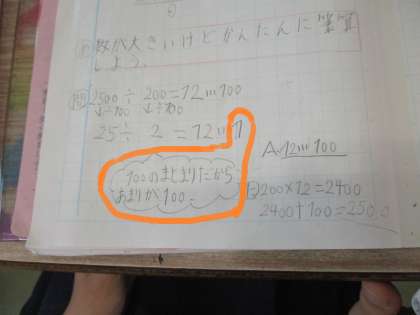 数が大きいけどかんたんに筆算
しよう。
問 2500÷200=12…100
↓÷100 ↓÷100
25÷2=12…1
A 12…100
100のまとまりだから
あまりが100。
200×12=2400
2400+100=2500